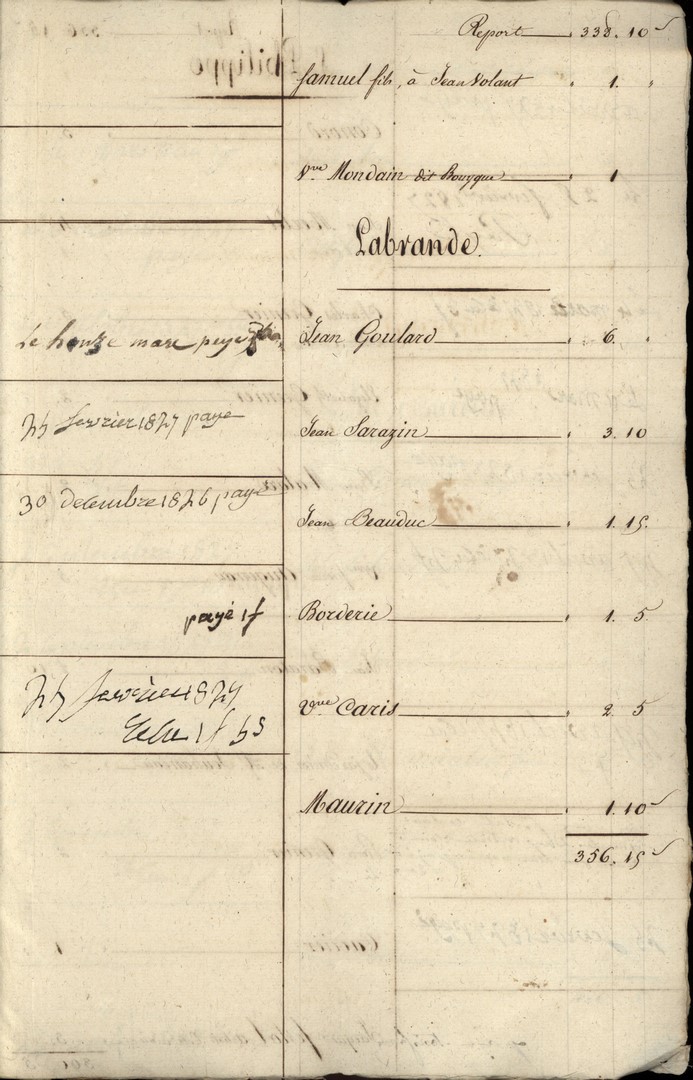 Report 338. 10
Samuel fils, à Jean Volant " 1. "
Vve Mondain dit Bouyque 1
Labrande.
Le honze mare paye Jean Goulard 6. "
25 fevrier 1827 paye Jean Sarazin 3. 10
30 decembre 1826 paye Jean Beauduc 1. 15.
payé 1f Borderie 1. 5
25 fevrier 1827 Vve Caris 2. 5
1f
Maurin 1. 10
356. 15